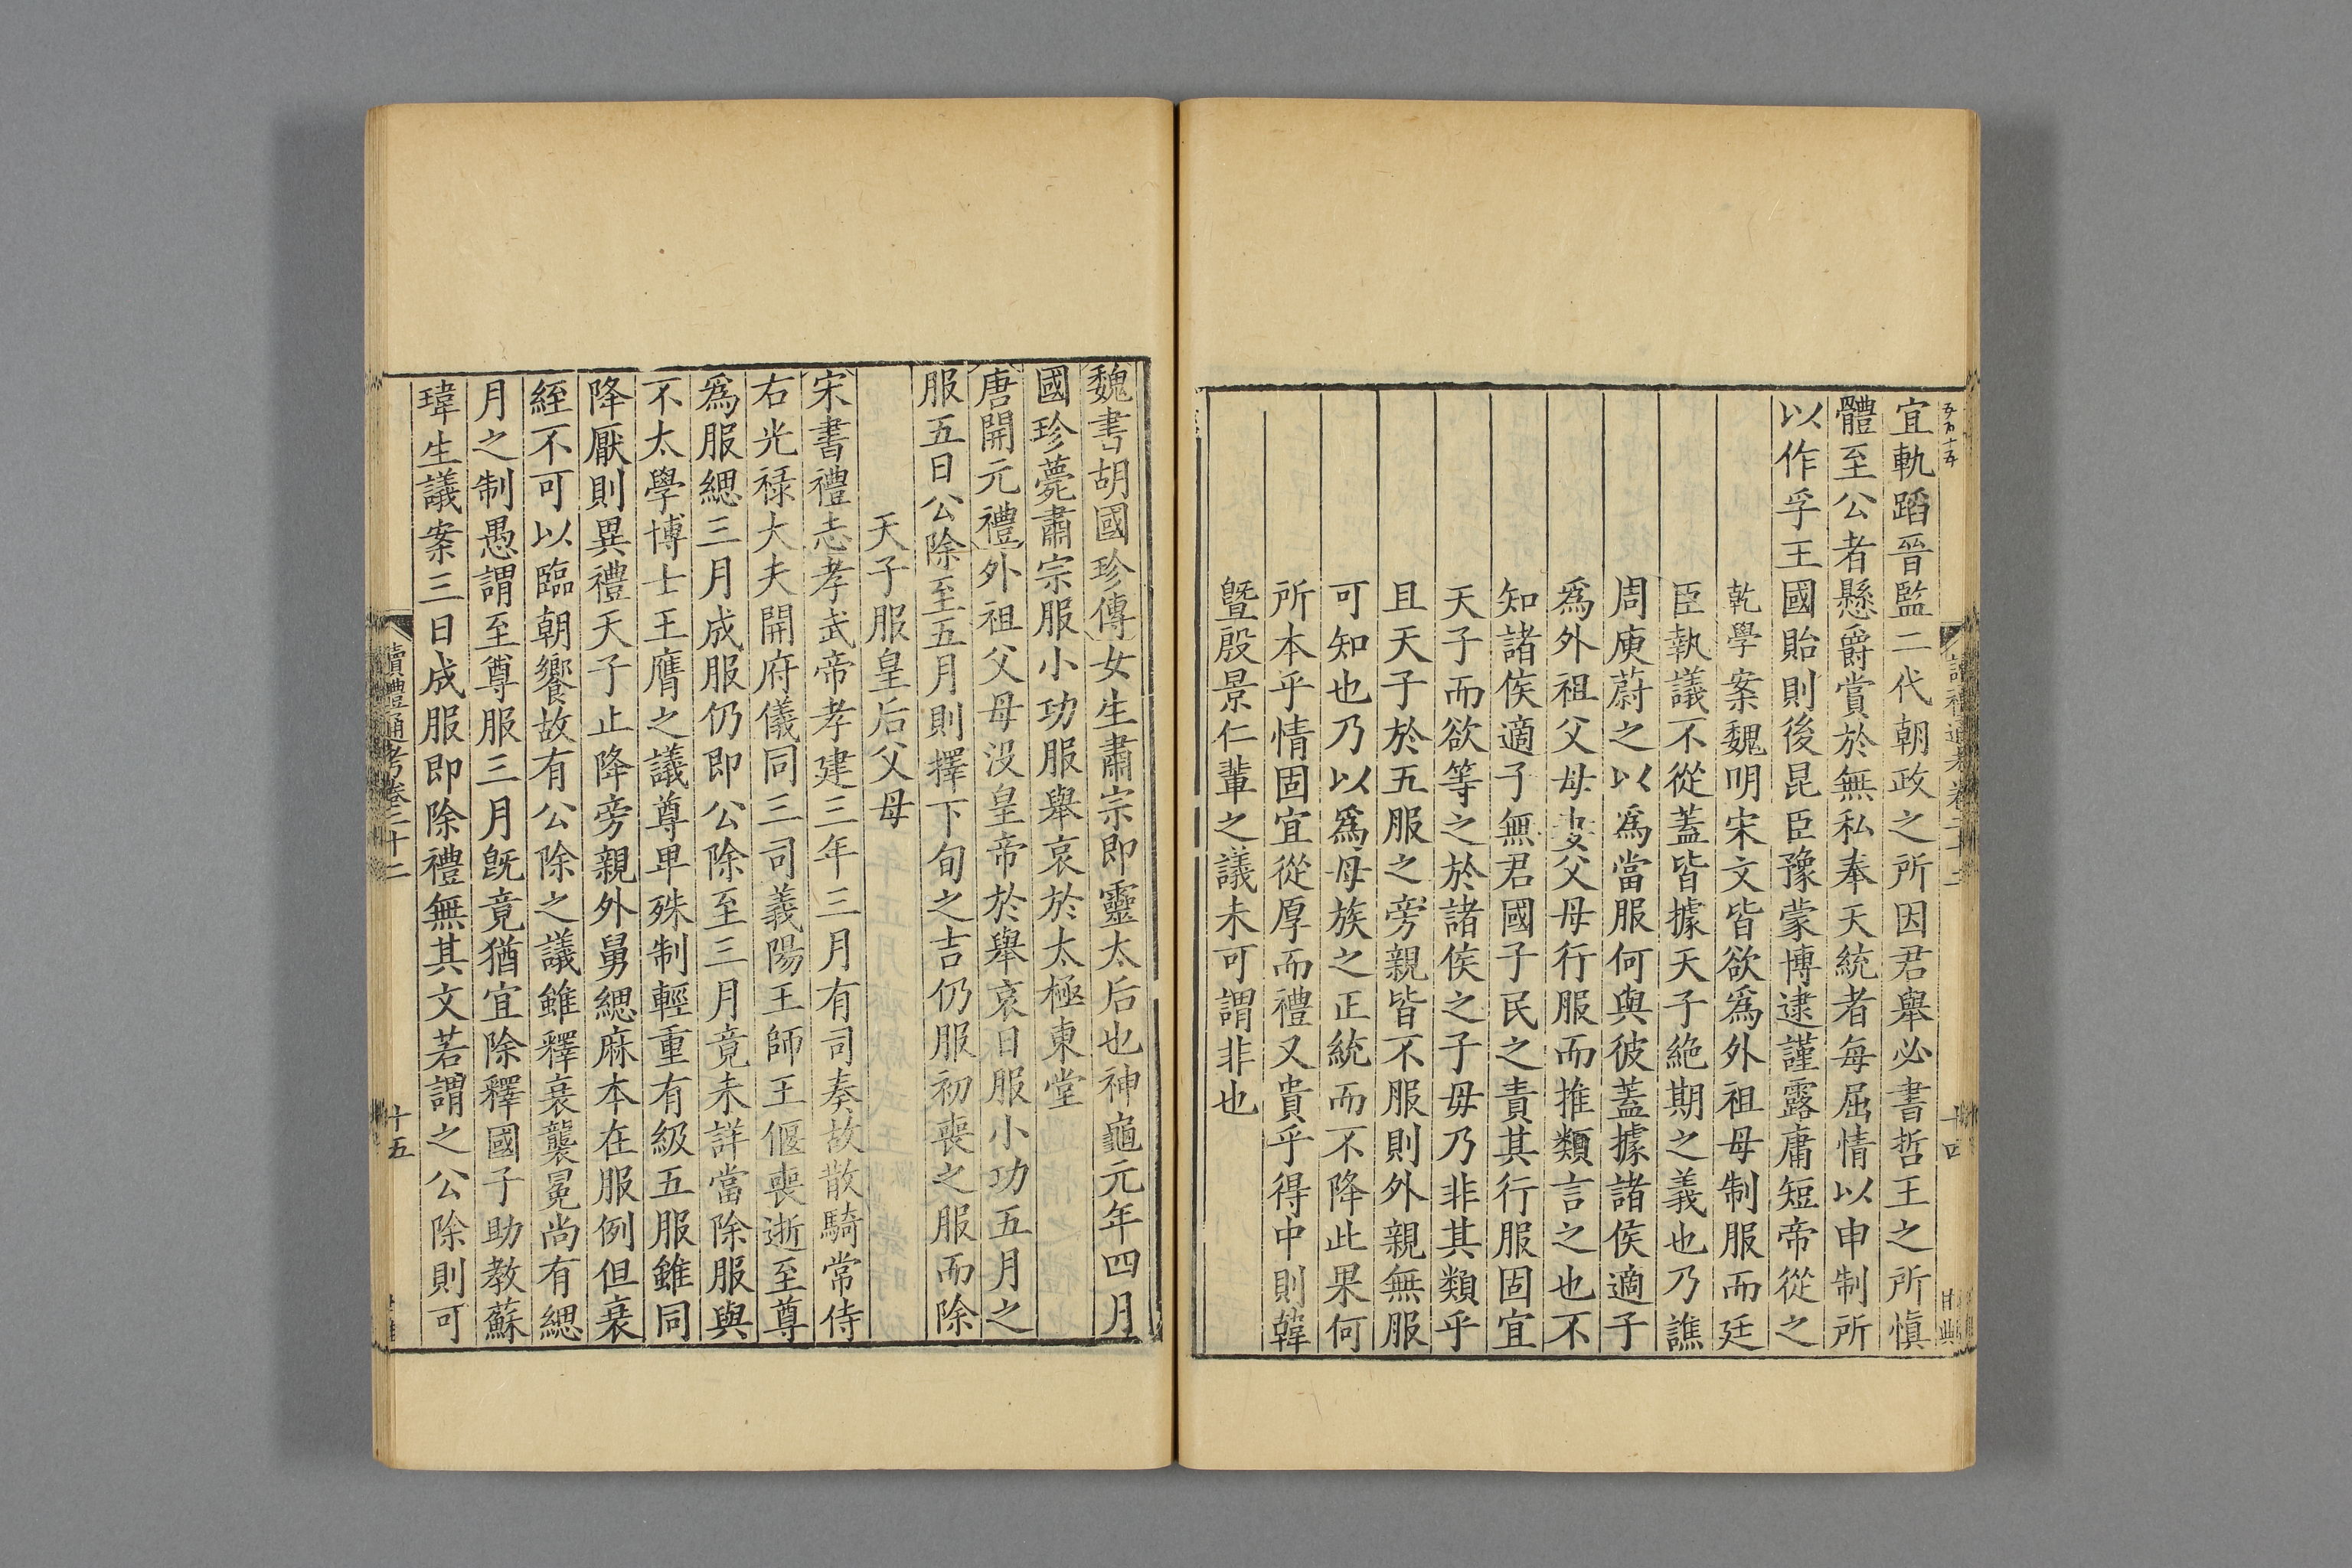 宜軌蹈晉監二代朝政之所因君舉必書哲王之所慎
體至公者懸爵賞於無私奉天統者每屈情以申制所
以作孚王國貽則後昆臣豫蒙博逮謹露庸短帝從之
乾學案魏明宋文皆欲爲外祖母制服而廷
臣執議不從蓋皆據天子絶期之義也乃譙
周庾蔚之以爲當服何與彼蓋據諸侯適子
爲外祖父母妻父母行服而推類言之也不
知諸侯適子無君國子民之責其行服固宜
天子而欲等之於諸侯之子毋乃非其類乎
且天子於五服之旁親皆不服則外親無服
可知也乃以爲母族之正統而不降此果何
所本乎情固宜從厚而禮又貴乎得中則韓
暨殷景仁輩之議未可謂非也
魏書胡國珍傳女生肅宗即靈太后也神龜元年四月
國珍薨肅宗服小功服舉哀於太極東堂
唐開元禮外祖父母没皇帝於舉哀日服小功五月之
服五日公除至五月則擇下旬之吉仍服初喪之服而除
天子服皇后父母
宋書禮志孝武帝孝建三年三月有司奏故散騎常侍
右光禄大夫開府儀同三司義陽王師王偃喪逝至尊
爲服緦三月成服仍即公除至三月竟未詳當除服與
不太學博士王膺之議尊卑殊制輕重有級五服雖同
降厭則異禮天子止降旁親外舅緦麻本在服例但衰
絰不可以臨朝饗故有公除之議雖釋衰襲冕尚有緦
月之制愚謂至尊服三月旣竟猶宜除釋國子助教蘇
瑋生議案三日成服即除禮無其文若謂之公除則可
讀禮通考卷二十二
十五